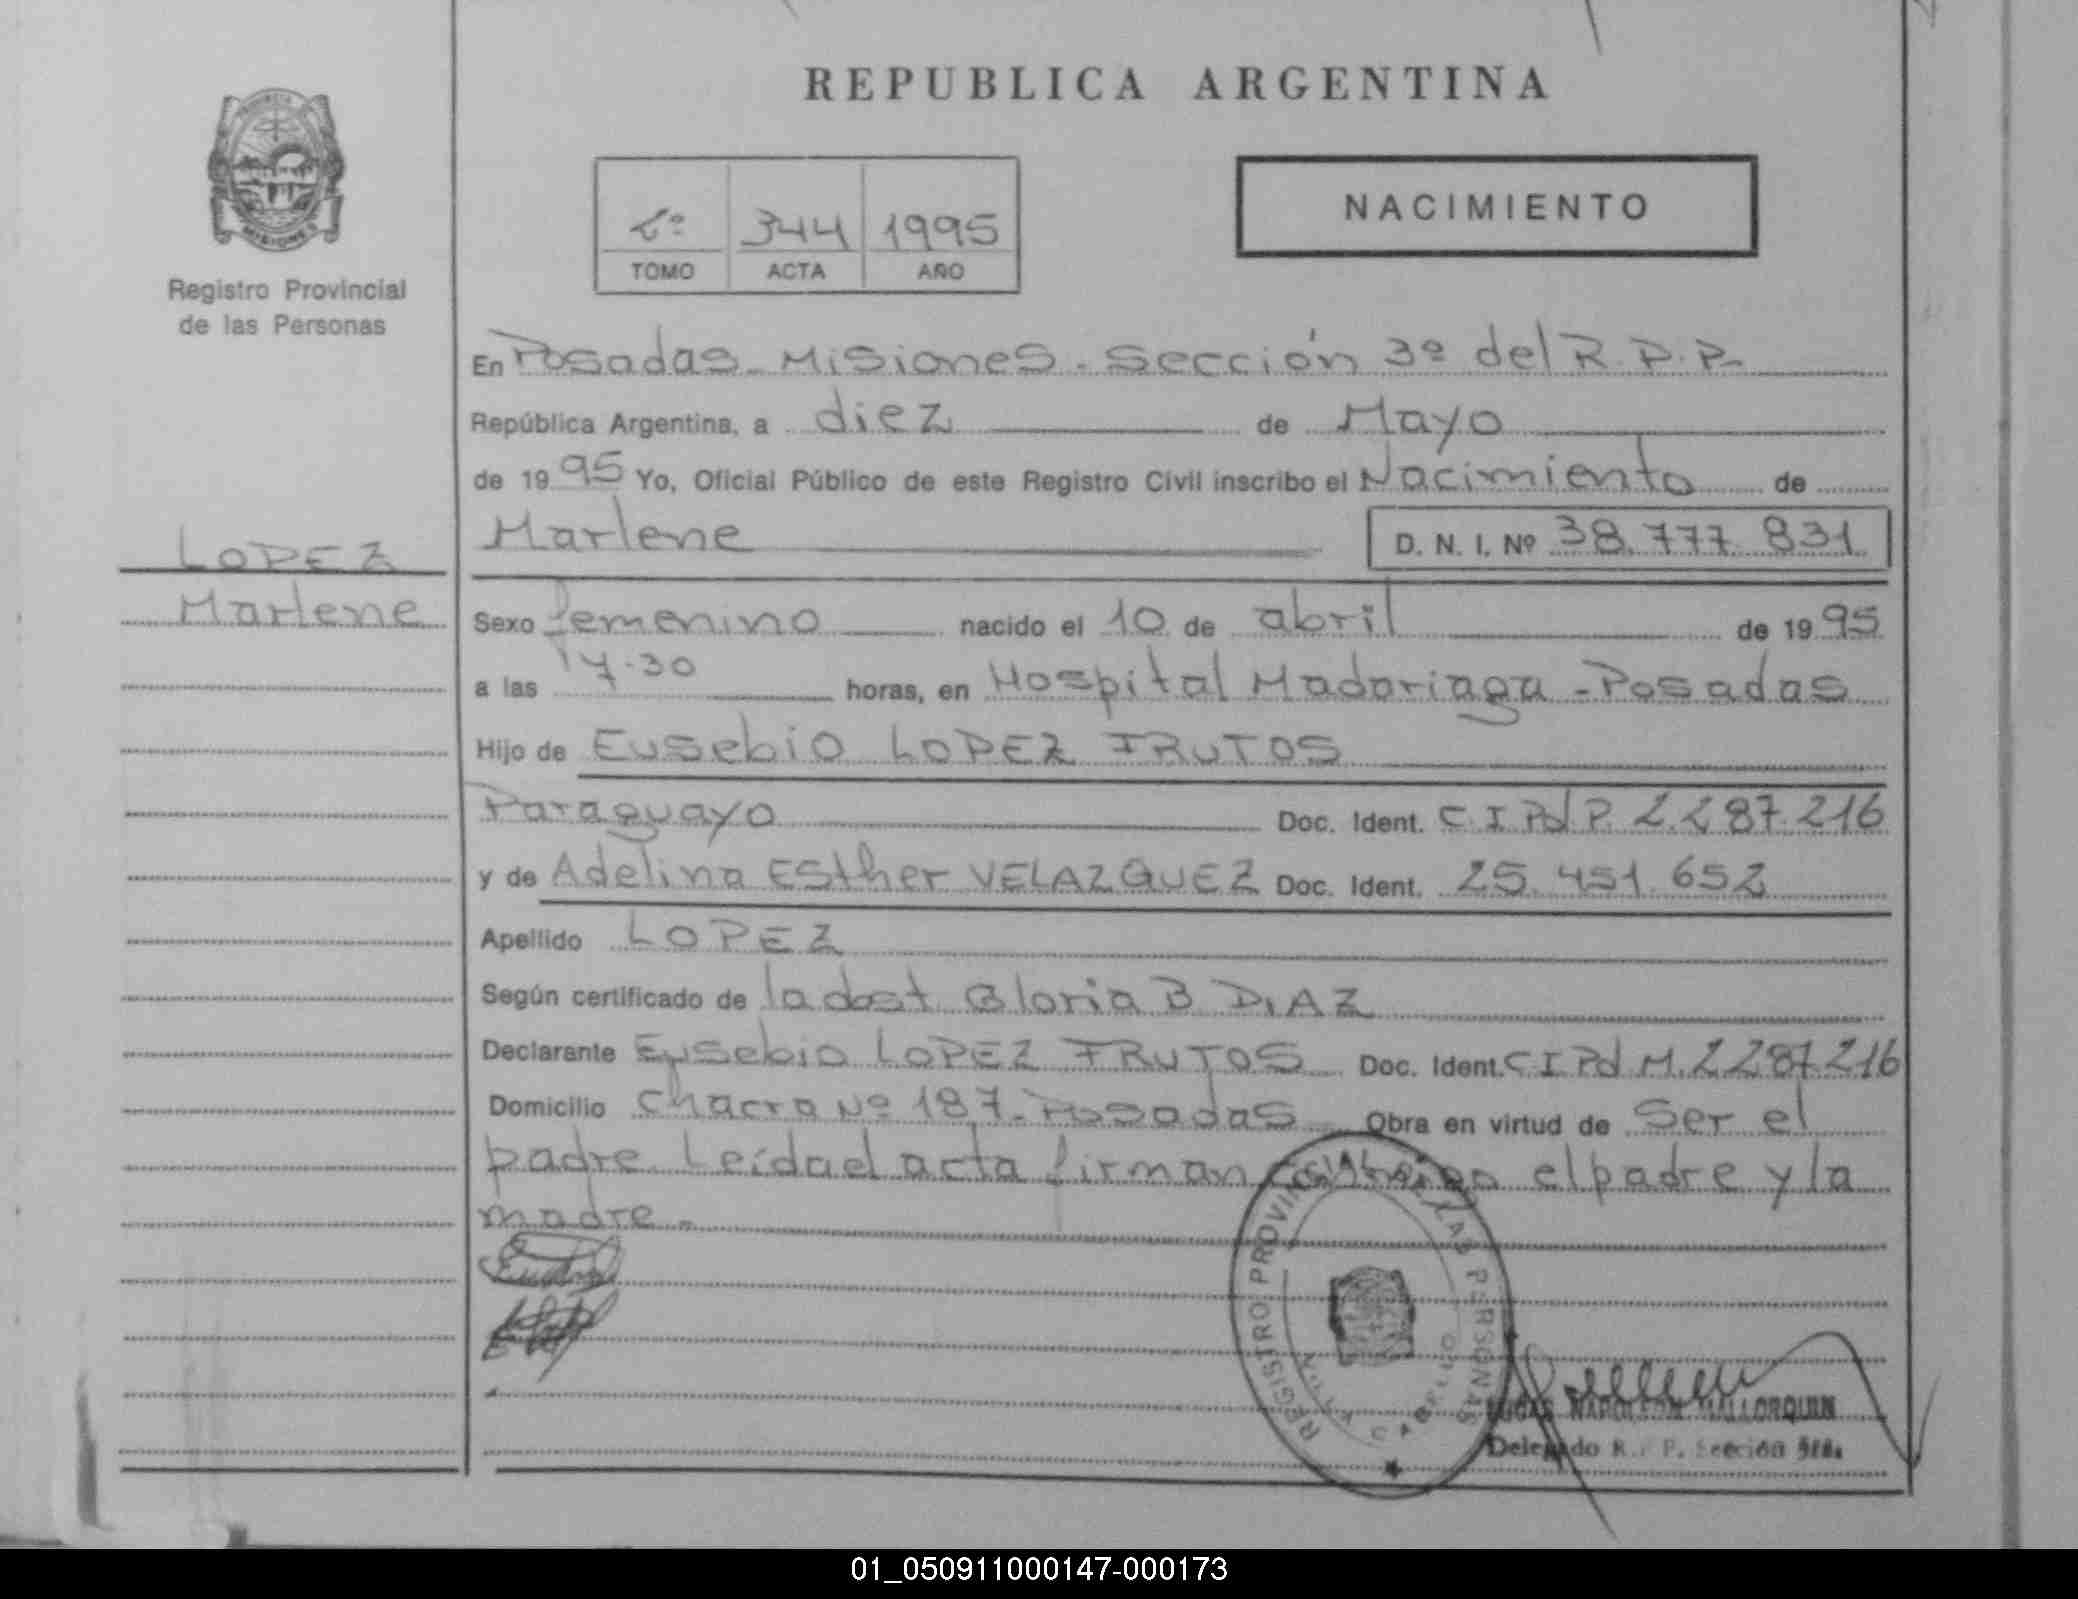 REPUBLICA ARGENTINA
PROVINCIA
MISIONES
Registro Provincial
de las Personas
2º 344 1995
TOMO ACTA AÑO
NACIMIENTO
En Posadas - Misiones - Sección 3º del R.P.P.
República Argentina, a diez de Mayo
de 1995 Yo, Oficial Público de este Registro Civil inscribo el Nacimiento de
Marlene D. N. I. Nº 38.777.831
LOPEZ
Marlene
Sexo femenino nacido el 10 de abril de 1995
a las 17.30 horas, en Hospital Madariaga - Posadas
Hijo de Eusebio LOPEZ FRUTOS
Paraguayo Doc. Ident. C.I.Pd P. 2.287.216
y de Adelina Esther VELAZQUEZ Doc. Ident. 25.451.652
Apellido LOPEZ
Según certificado de la dost. Gloria B DIAZ
Declarante Eusebio LOPEZ FRUTOS Doc. Ident. C I Pd M. 2287216
Domicilio Chacra Nº 187 - Posadas Obra en virtud de Ser el
padre. Leída el acta firman conmigo el padre y la
madre.-
REGISTRO PROVINCIAL DE LAS PERSONAS
LUCAS NAPOLEON MALLORQUIN
Delegado R. P. P. Sección 3ra.
01_050911000147-000173